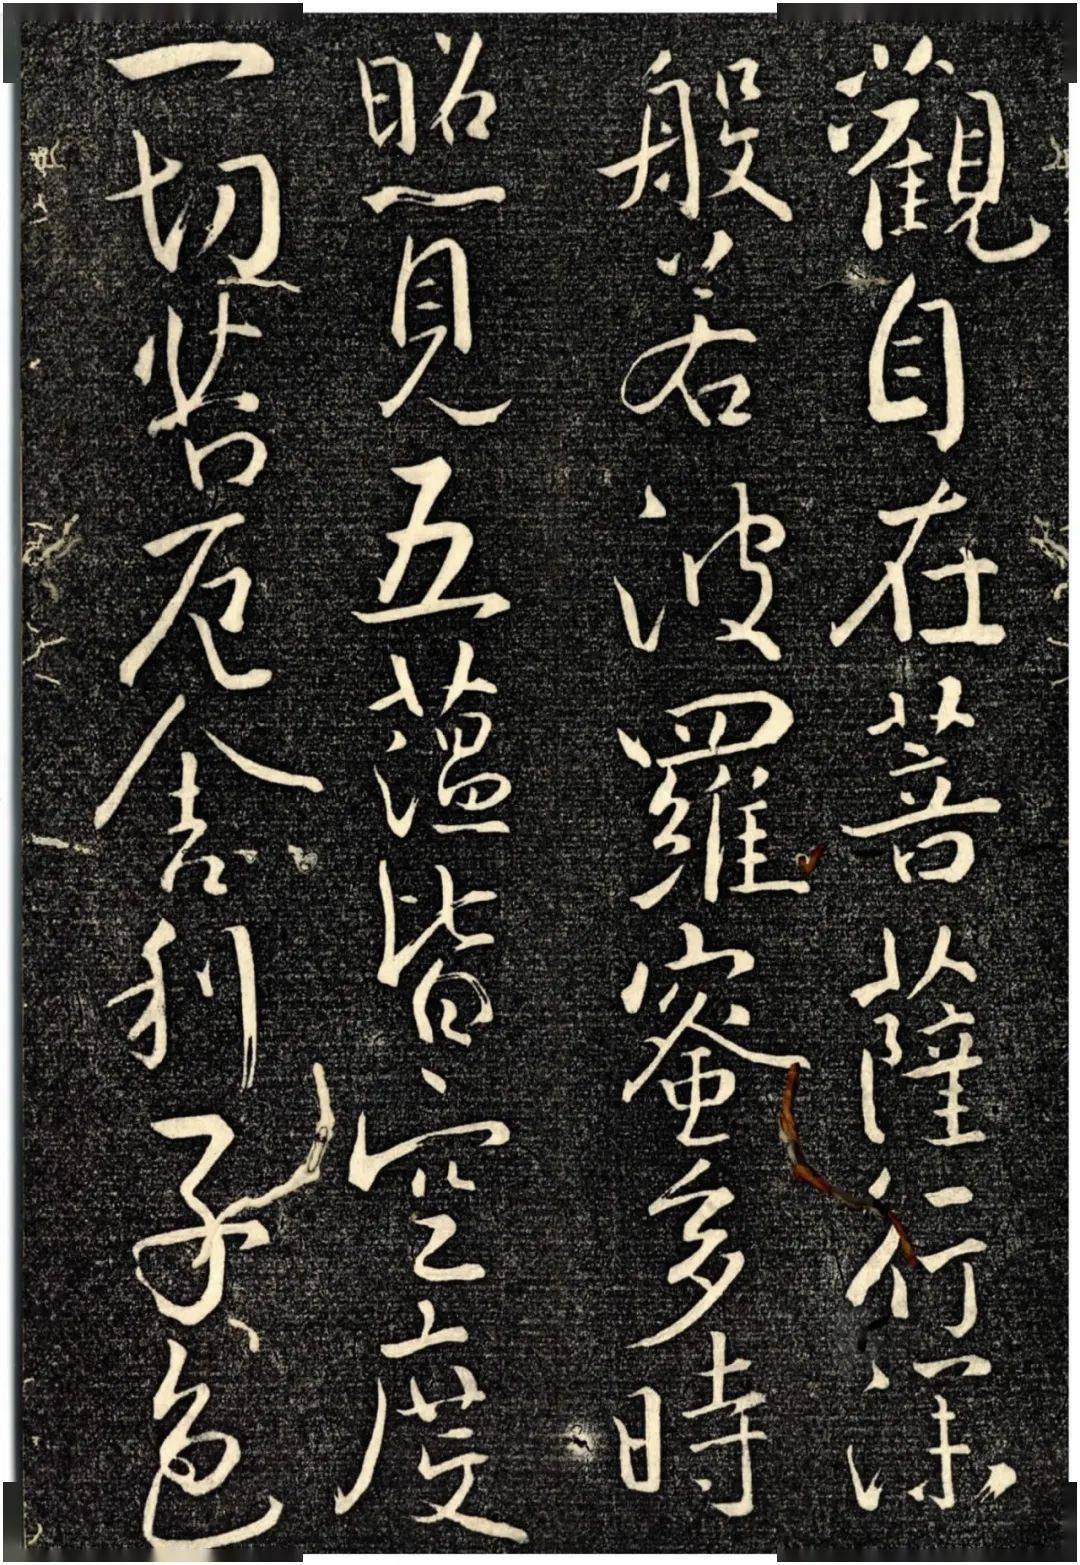 觀自在菩薩行深
般若波羅蜜多時
照見五蘊皆空度
一切苦厄舍利子色